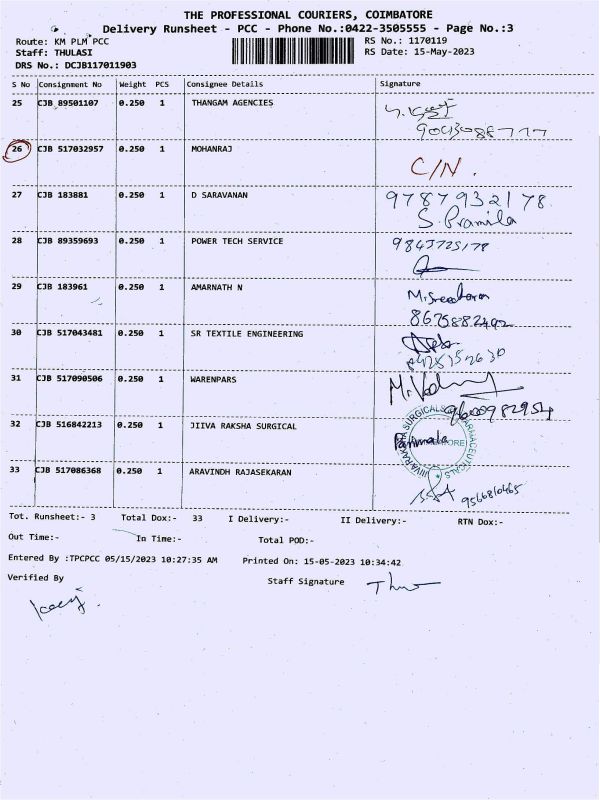 THE PROFESSIONAL COURIERS, COIMBATORE
Delivery Runsheet - PCC - Phone No.:0422-3505555 - Page No.:3
Route: KM PLM PCC RS No.: 1170119
Staff: THULASI RS Date: 15-May-2023
DRS No.: DCJB117011903
S No Consignment No Weight PCS Consignee Details Signature
25 CJB 89501107 0.250 1 THANGAM AGENCIES
26 CJB 517032957 0.250 1 MOHANRAJ
C/N.
27 CJB 183881 0.250 1 D SARAVANAN 9787932178
S. Pramila
28 CJB 89359693 0.250 1 POWER TECH SERVICE
29 CJB 183961 0.250 1 AMARNATH N
8675882492
30 CJB 517043481 0.250 1 SR TEXTILE ENGINEERING
31 CJB 517090506 0.250 1 WARENPARS
9600982954
32 CJB 516842213 0.250 1 JIIVA RAKSHA SURGICAL
Parimala
33 CJB 517086368 0.250 1 ARAVINDH RAJASEKARAN
9566810465
Tot. Runsheet:- 3 Total Dox:- 33 I Delivery:- II Delivery:- RTN Dox:-
Out Time:- In Time:- Total POD:-
Entered By :TPCPCC 05/15/2023 10:27:35 AM Printed On: 15-05-2023 10:34:42
Verified By Staff Signature